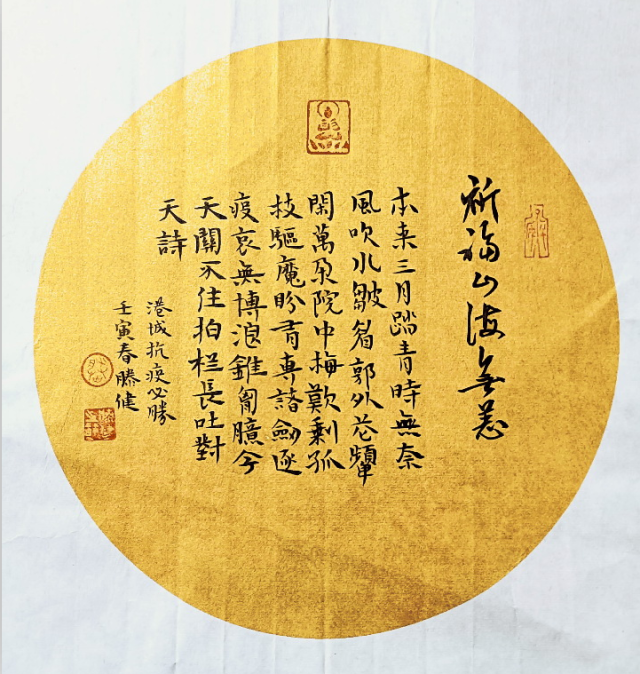 祈福山海無恙
本来三月踏青時無奈
風吹水皺眉郭外花顰
閑萬朵院中梅歎剩孤
枝驅魔盼有專諸劍逐
疫哀無博浪錐匈臆今
天關不住拍栏長吐對
天詩
港城抗疫必勝
壬寅春滕健